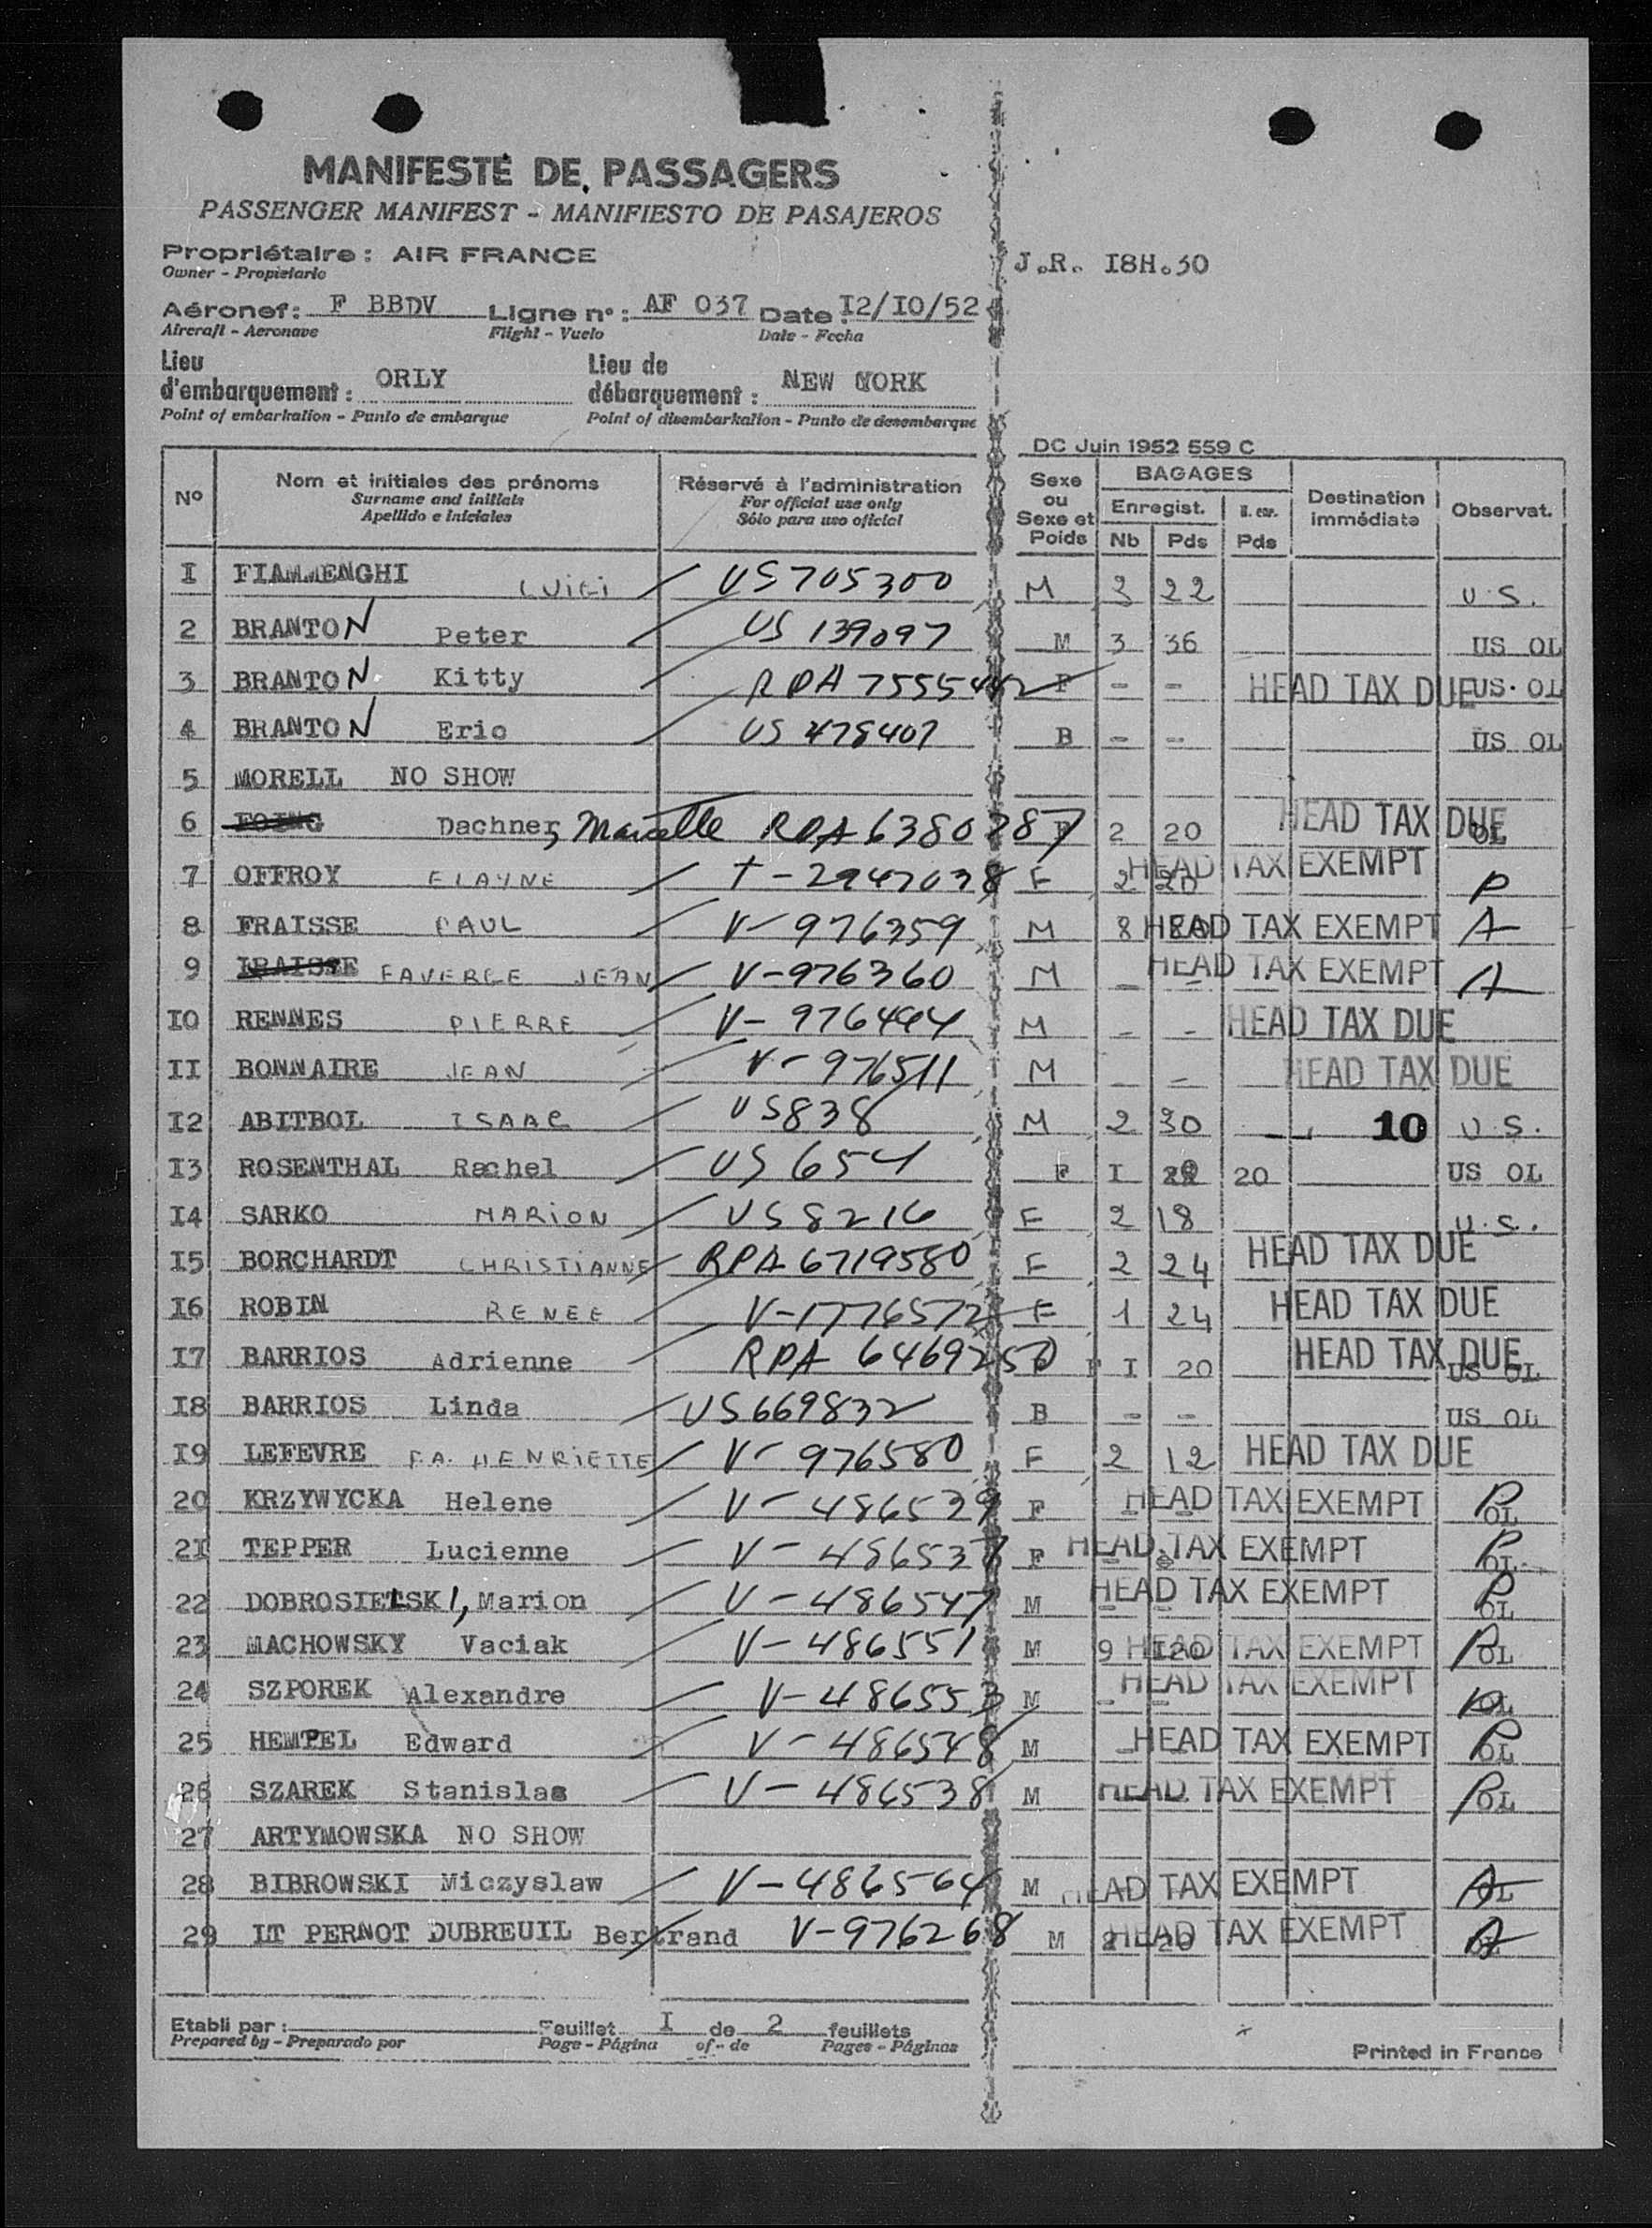 MANIFESTE DE PASSAGERS
PASSENGER MANIFEST - MANIFIESTO DE PASAJEROS
Propriétaire : AIR FRANCE
Owner - Propietario
J.R. I8H.30
Aéronef : F BBDV Ligne n° : AF 037 Date : I2/I0/52
Aircraft - Aeronave Flight - Vuelo Date - Fecha
Lieu d'embarquement : ORLY Lieu de débarquement : NEW YORK
Point of embarkation - Punto de embarque Point of disembarkation - Punto de desembarque
DC Juin 1952 559 C
N° Nom et initiales des prénoms Réservé à l'administration Sexe ou Sexe et Poids BAGAGES Destination immédiate Observat.
Surname and initials For official use only Enregist.
Apellido e iniciales Sólo para uso oficial Nb Pds Pds
I FIAMMENGHI LUIGI US705300 M 2 22 U.S.
2 BRANTON Peter US 139097 M 3 36 US OL
3 BRANTON Kitty RPA 7555442 F - - HEAD TAX DUE US. OL
4 BRANTON Eric US 478407 B - - US OL
5 MORELL NO SHOW
6 Dachner, Marcelle RPA 6380787 F 2 20 HEAD TAX DUE OL
7 OFFROY ELAYNE T-2947038 F 2 20 HEAD TAX EXEMPT P
8 FRAISSE PAUL V-976359 M 8 HEAD TAX EXEMPT A
9 FRAISSE FAVERGE JEAN V-976360 M - - HEAD TAX EXEMPT A
I0 RENNES PIERRE V-976494 M - - HEAD TAX DUE
II BONNAIRE JEAN V-976511 M - - HEAD TAX DUE
I2 ABITBOL ISAAC US838 M 2 30 10 U.S.
I3 ROSENTHAL Rachel US 654 F I 20 US OL
I4 SARKO MARION US 8216 F 2 18 U.S.
I5 BORCHARDT CHRISTIANNE RPA 6719580 F 2 24 HEAD TAX DUE
I6 ROBIN RENEE V-1776572 F 1 24 HEAD TAX DUE
I7 BARRIOS Adrienne RPA 6469250 F I 20 HEAD TAX DUE US OL
I8 BARRIOS Linda US669832 B - - US OL
I9 LEFEVRE F.A. HENRIETTE V-976580 F 2 12 HEAD TAX DUE
20 KRZYWYCKA Helene V-486539 F - - HEAD TAX EXEMPT P OL
2I TEPPER Lucienne V-486537 F - HEAD TAX EXEMPT P OL
22 DOBROSIELSKI, Marion V-486547 M - - HEAD TAX EXEMPT P OL
23 MACHOWSKY Vaciak V-486551 M 9 I20 HEAD TAX EXEMPT P OL
24 SZPOREK Alexandre V-486553 M - - HEAD TAX EXEMPT P OL
25 HEMPEL Edward V-486548 M - - HEAD TAX EXEMPT P OL
26 SZAREK Stanislas V-486538 M HEAD TAX EXEMPT P OL
27 ARTYMOWSKA NO SHOW
28 BIBROWSKI Miczyslaw V-486564 M HEAD TAX EXEMPT A OL
29 LT PERNOT DUBREUIL Bertrand V-976268 M 2 20 HEAD TAX EXEMPT A OL
Etabli par : Feuillet I de 2 feuillets
Prepared by - Preparado por Page - Página of - de Pages - Páginas
Printed in France